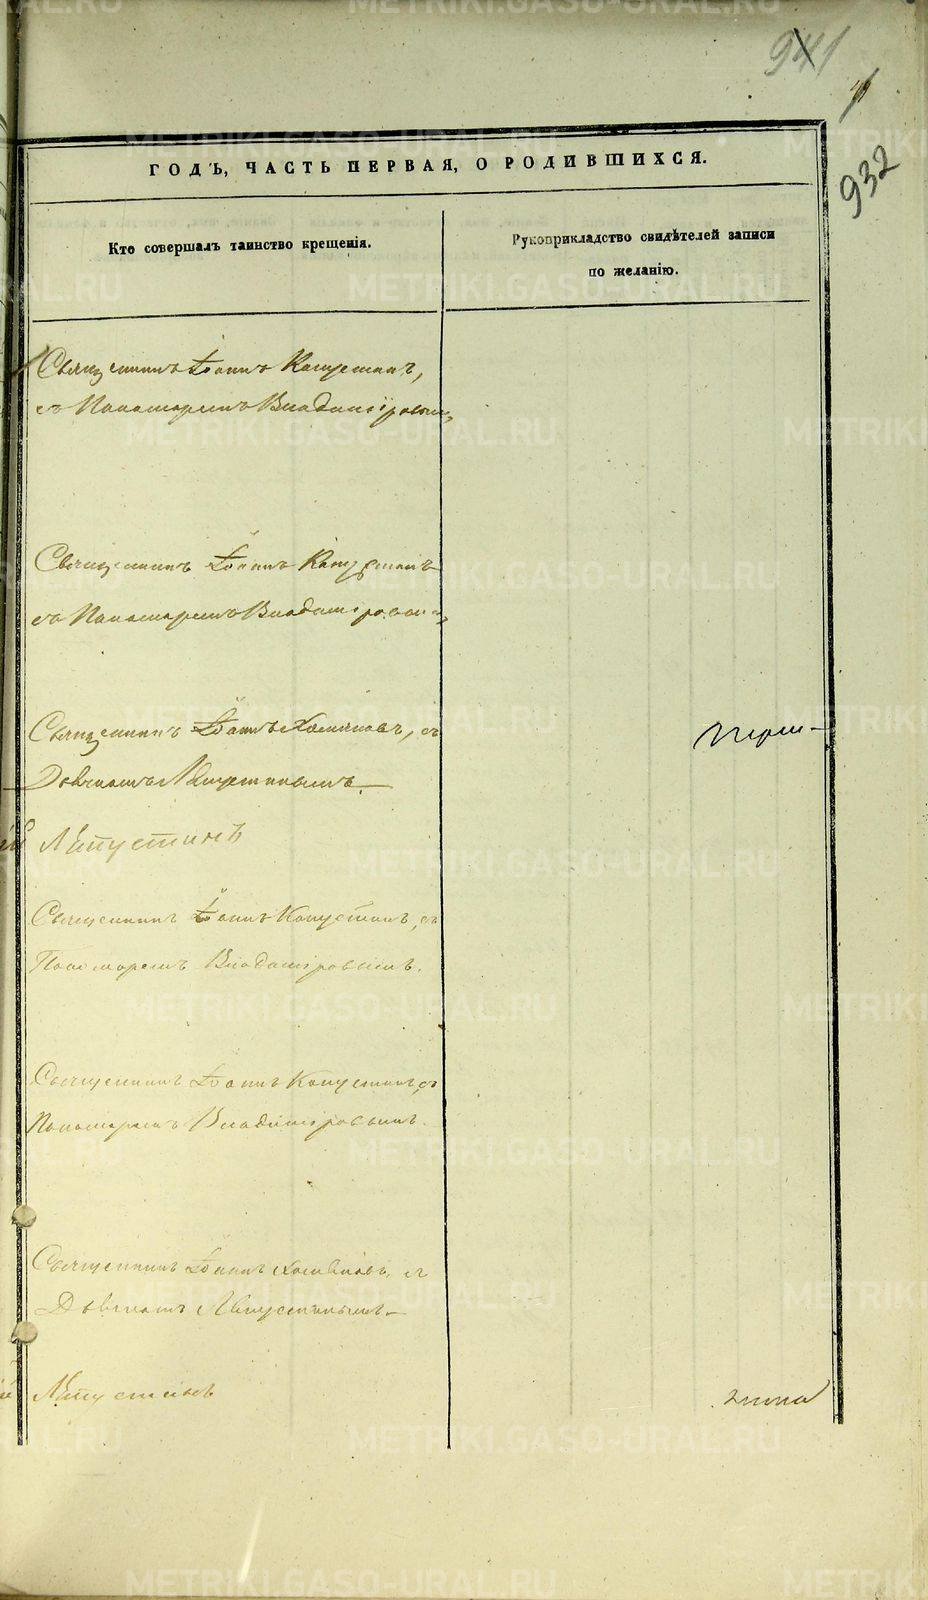 941
932
ГОДЪ, ЧАСТЬ ПЕРВАЯ, О РОДИВШИХСЯ.
Кто совершалъ таинство крещенія.
Рукоприкладство свидѣтелей записи
по желанію.
Священникъ Іоаннъ Капустинъ,
съ Пономаремъ Владиміровым,
Священникъ Іоаннъ Капустинъ
съ Пономаремъ Владиміровым,
Священникъ Іоаннъ Хомяковъ, съ
Дьячкомъ Ляпустинымъ.
Ляпустинъ
Священникъ Іоаннъ Капустинъ, съ
Пономаремъ Владиміровымъ.
Священникъ Іоаннъ Капустинъ, съ
Пономаремъ Владиміровымъ.
Священникъ Іоаннъ Хомяковъ, съ
Дьячкомъ Ляпустинымъ.
Ляпустинъ
METRIKI.GASO-URAL.RU